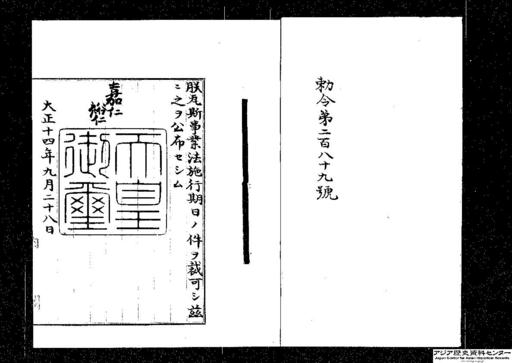 勅令第二百八十九號
朕瓦斯事業法施行期日ノ件ヲ裁可シ茲
ニ之ヲ公布セシム
嘉仁
裕仁
天皇
御璽
大正十四年九月二十八日
アジア歴史資料センター
Japan Center for Asian Historical Records